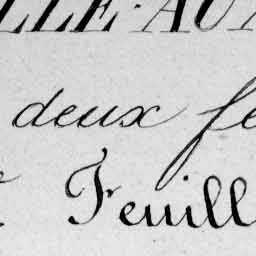 LLE·AU
deux fe
Feuill